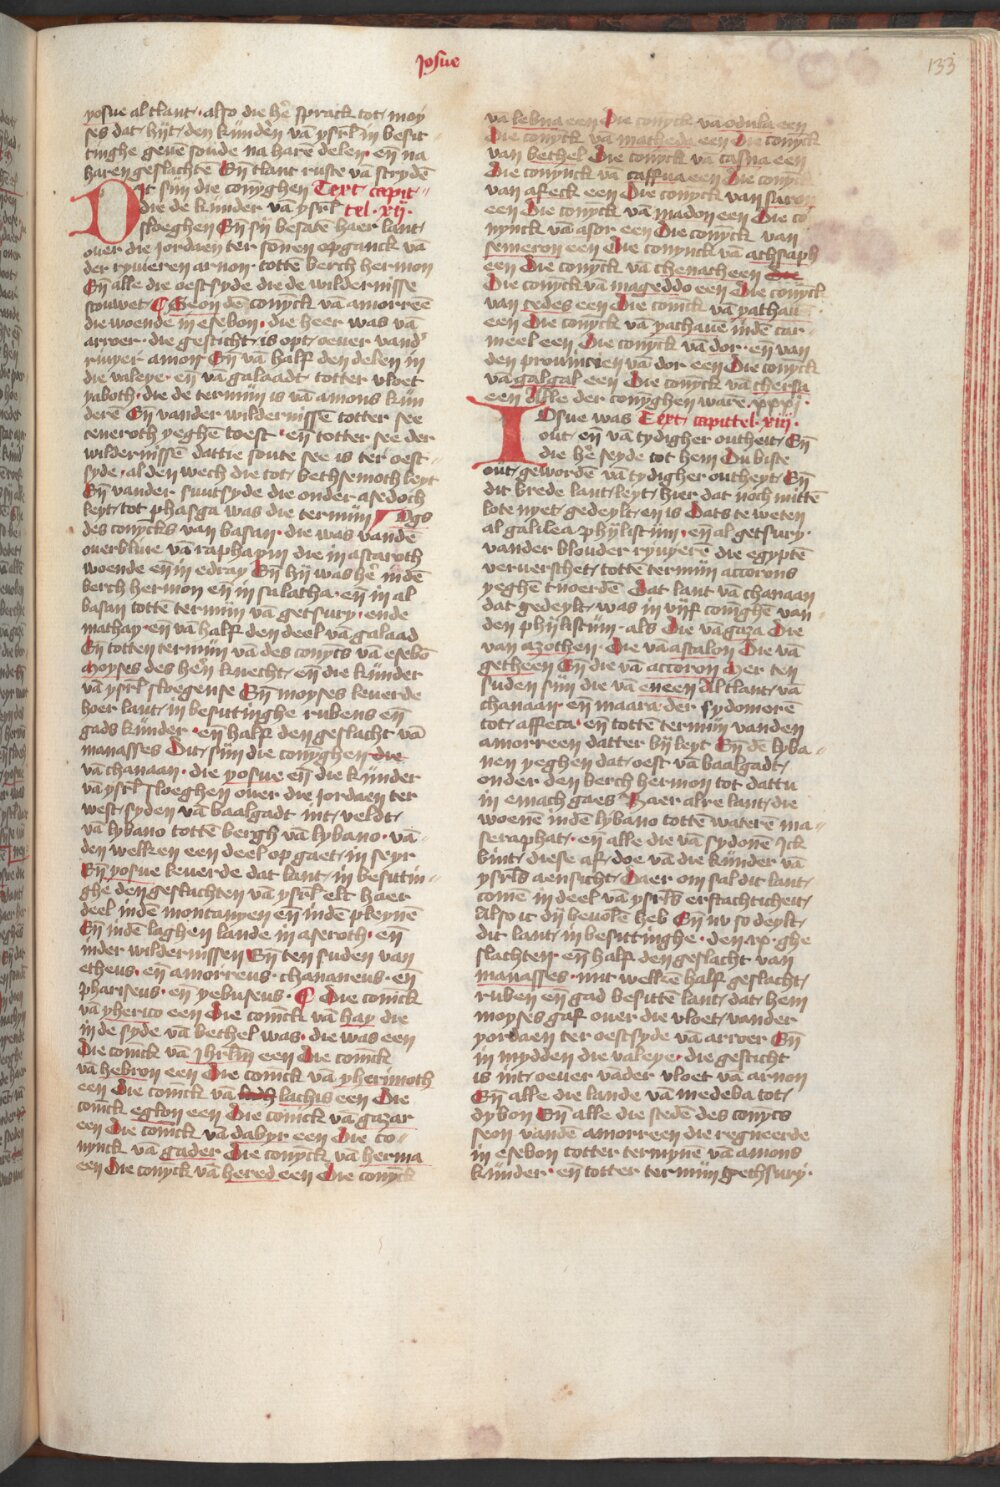 Josue
133
yosue al tlant · also die he͞r sprack tot moy
ses dat hijt den kunderē vā ysrl̄ in besit
tinghe gevē soude na harē delen · en̄ na
haren geslachtē En̄ tlant ruste vā strydē
Dit sijn die conyghen Text capit
die de kunder vā ysrl̄ tel · xij ·
sloeghen En̄ sij besatē haer lant
over die jordaen ter sonen opganck vā
der ryvieren arnon · tottē berch hermon
En̄ alle die oestsyde die de wildernisse
scouwet · Seon dē conyck vā amorreē
die woende in esebon · die heer was vā
aroer · die gesticht is opt oever vand'
rivyer arnon En̄ vā half den delen in
die valeye · en̄ vā galaadt totter vloet
jaboth · die de termijn is vā amons kun
derē En̄ vander wildernissē totter see
ceneroth yeghē toest · en̄ totter see der
wildernissē dattie soute see is ter oest
syde · al den wech die tot bethsemoth leyt
En̄ vander suutsyde die onder asedoch
leyt tot phasga was die termijn Ogs
des conycks van basan · die was vandē
overblive vā raphaym die in astaroth
woende en̄ in edray En̄ hij was he͞r indē
berch hermon en̄ in salatha · en̄ in al
basan tottē termijn vā getsury · ende
mathay · en̄ vā half den deel vā galaad
En̄ totten termijn vā des conycs vā esebō
Moyses des herē knecht en̄ die kunder
vā ysrl̄ sloegense En̄ moyses leverde
hoer lant in besittinghe rubens en̄
gads kunder · en̄ half den geslacht vā
manasses Dit sijn die conyghen die
vā chanaan · die yosue en̄ die kunder
vā ysrl̄ sloeghen over die jordaen ter
west syden vā baalgadt int veldt
vā lybano tottē bergh vā lybano · vā
den welken een deel op gaet in seyr
En̄ yosue leverde dat lant in besittin
ghe den geslachten vā ysrl̄ elc haer
deel indē montanyen en̄ indē pleynē
En̄ indē laghen lande in aseroth · en̄
inder wildernissen En̄ ten suden van
etheus · en̄ amorreus · chananeus · en̄
phariseus · en̄ yebuseus · Die coninck
vā yherico een Die coninck vā hay die
in de syde vā bethel was · die was een
Die coninck vā Jhrl̄m een Die coninck
vā hebron een Die coninck vā yherimoth
een Die coninck vā lachis een Die
coninck eglon een Die coninck vā gazar
een Die coninck vā dabyr een Die co
nynck vā gader Die conyck vā herma
een Die conyck vā hered een Die conyck
vā lebna een Die conyck vā odula een
Die conyck vā matheda een Die conyck
van bethel Die conyck vā tasna een
Die conynck vā caffua een Die conyck
van afeck een Die conyck van saron
een Die conyck vā madon een Die co
nynck vā asor een Die conyck van
semeron een Die conynck vā achsaph
een Die conyck vā thenach een
Die conyck vā mageddo een Die conyck
van cedes een Die coninck vā yathaue
een Die conyck vā yachaue indē car
meel een Die conyck vā dor · en̄ van
den provincien vā dor een Die conyck
vā galgal een Die conyck vā thersa
een Alle der conyghen ware͞ xxxj ·
IOsue was Text capittel · xiij ·
out en̄ vā tydigher outheit En̄
die he͞ seyde tot hem Du biste
out gewordē vā tydigher outheyt En̄
dit brede lant leyt hier dat noch mittē
lote nyet gedeylt en is Dats te weten
al galilea · phijlistijm · en̄ al getsury ·
vander blouder ryvyerē die egyptē
ververschet tottē termijn accorons
yeghē tnoerdē Dat lant vā chanaan
dat gedeylt was in vijf conighē van
den phijlistijm · als Die vā gaza Die
van azothen · Die vā astalon Die vā
getheen En̄ die vā accoron Der ten
suden sijn die vā eneen Al tlant vā
chanaan en̄ maara der sydonierē
tot affeca · en̄ tottē termijn vanden
amorreen datter bij leyt En̄ dē lyba
nen yeghen dat oest vā baalgadt
onder den berch hermon tot dattu
in emach gaes Haer alre lant die
woenē indē lybano tottē waterē ma
seraphat · en̄ alle die vā sydonē Ick
bint diese af doe vā die kunder vā
ysrl̄s aensicht Daer om sal dit lant
comē in deel vā ysrl̄s erfachticheit
Also ic dij bevolē heb En̄ nv so deylt
dit lant in besittinghe · den ix · ghe
slachten · en̄ half den geslacht van
manasses · mit welkē half geslacht
ruben en̄ gad besittē lant dat hem
moyses gaf over die vloet vander
yordaen ter oestsyde vā aroer En̄
in mydden die valeye · die gesticht
is int oever vāder vloet vā arnon
En̄ alle die lande vā medeba tot
dybon En̄ alle die stedē des conycs
seon vandē amorreen die regneerde
in esebon totter termyne vā amons
kunder · en̄ totter termijn gethsury ·